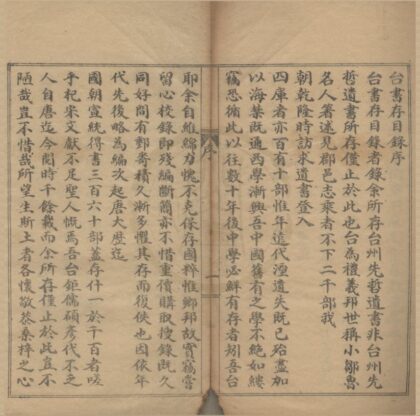 台書存目錄序
台書存目錄者錄余所存台州先哲遺書非台州先
哲遺書所存僅止於此也台為禮義邦世稱小鄒魯
名人箸述見郡邑志乘者不下二千部我
朝乾隆時訪求遺書登入
四庫者亦百有十部惟年遠代湮遺失既已殆盡加
以海禁既通西學漸興吾中國舊有之學不絕如縷
竊恐循此以往數十年後中學必鮮有存者矧吾台
序
一
耶余自維綿力愧不克保存國粹惟鄉邦故實竊嘗
留心校錄即殘編斷簡亦不惜重價購取搜錄既久
同好間有郵寄積久漸多懼其存而復佚也因依年
代先後略為編次起唐大歷迄
國朝宣統得書三百六十部蓋存什一於千百者嗟
乎杞宋文獻不足聖人慨焉吾台鉅儒碩彥代不乏
人自唐迄今閱時千餘載而余所存僅止於此豈不
陋哉豈不惜哉所望生斯土者各懷敬恭桑梓之心